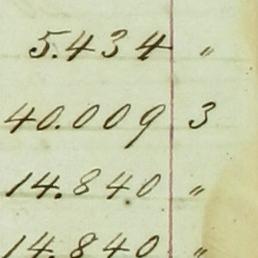 5.434 "
40.009 3
14.840 "
14.840 "